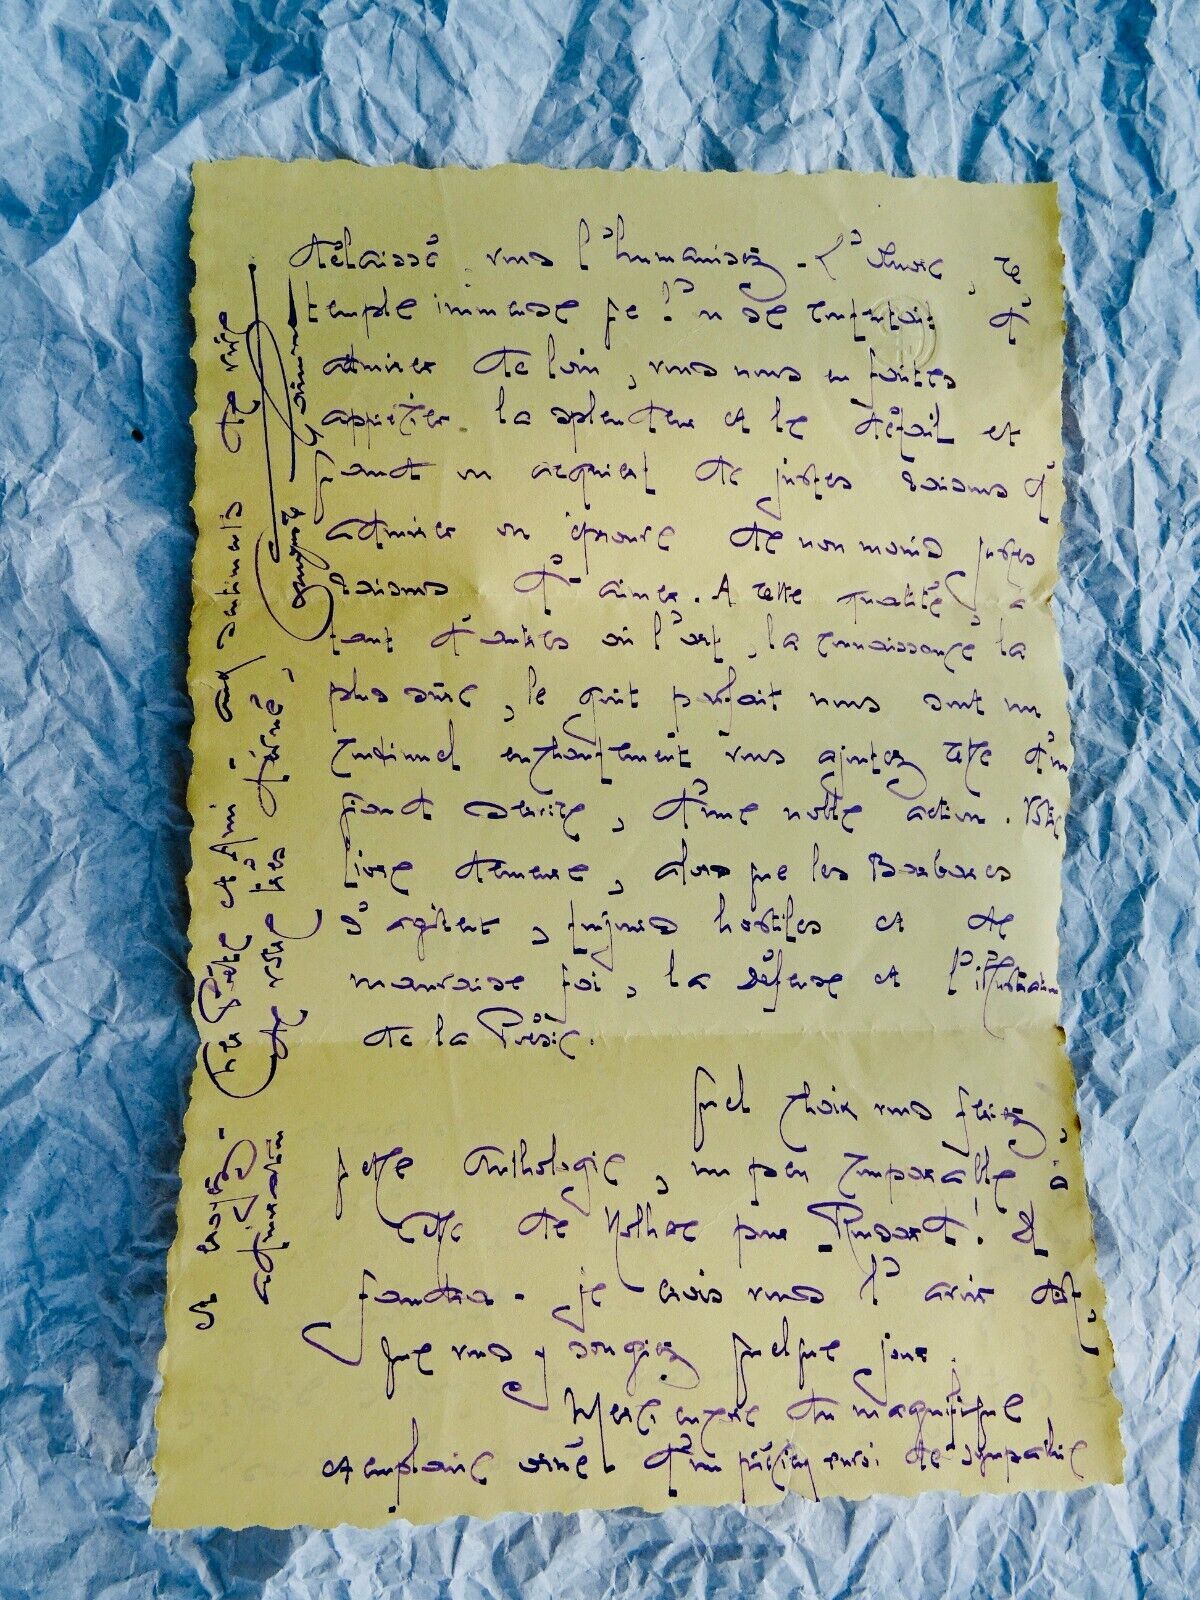 délaissé, vous l'humanisez - L'œuvre, ce
temple immense que l'on se contentait d'
admirer de loin, vous nous en faites
apprécier la splendeur et le détail et
quand on acquiert de justes raisons d'
admirer on éprouve de non moins justes
raisons d'aimer. A cette qualité, à
tant d'autres où l'art, la connaissance la
plus sûre, le goût parfait nous sont un
continuel enchantement vous ajoutez celle d'un
grand service, d'une noble action. Votre
livre demeure, alors que les Barbares
s'agitent, toujours hostiles et de
mauvaise foi, la défense et l'illustration
de la Poésie.
Quel choix vous feriez,
quelle Anthologie, un peu comparable à
celle de Nolhac pour Ronsard! Il
faudra - je crois vous l'avoir dit,
que vous y songiez quelque jour.
Merci encore du magnifique
exemplaire orné d'un précieux envoi de sympathie
et croyez, cher Poète et Ami, aux sentiments de vive
admiration de votre très dévoué,